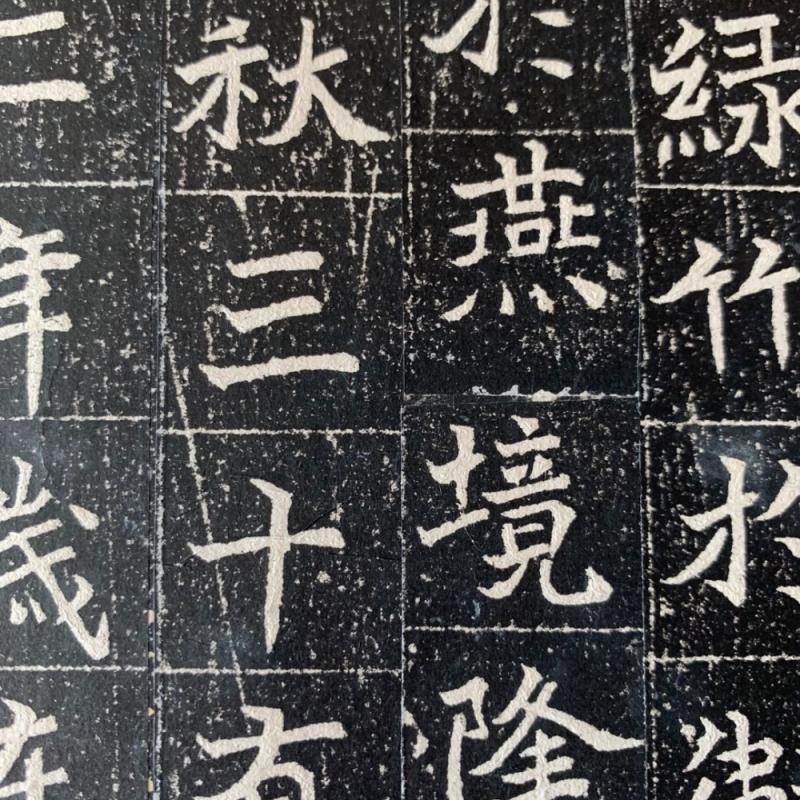 綠竹於衛
於燕境隆
秋三十有
年歲在